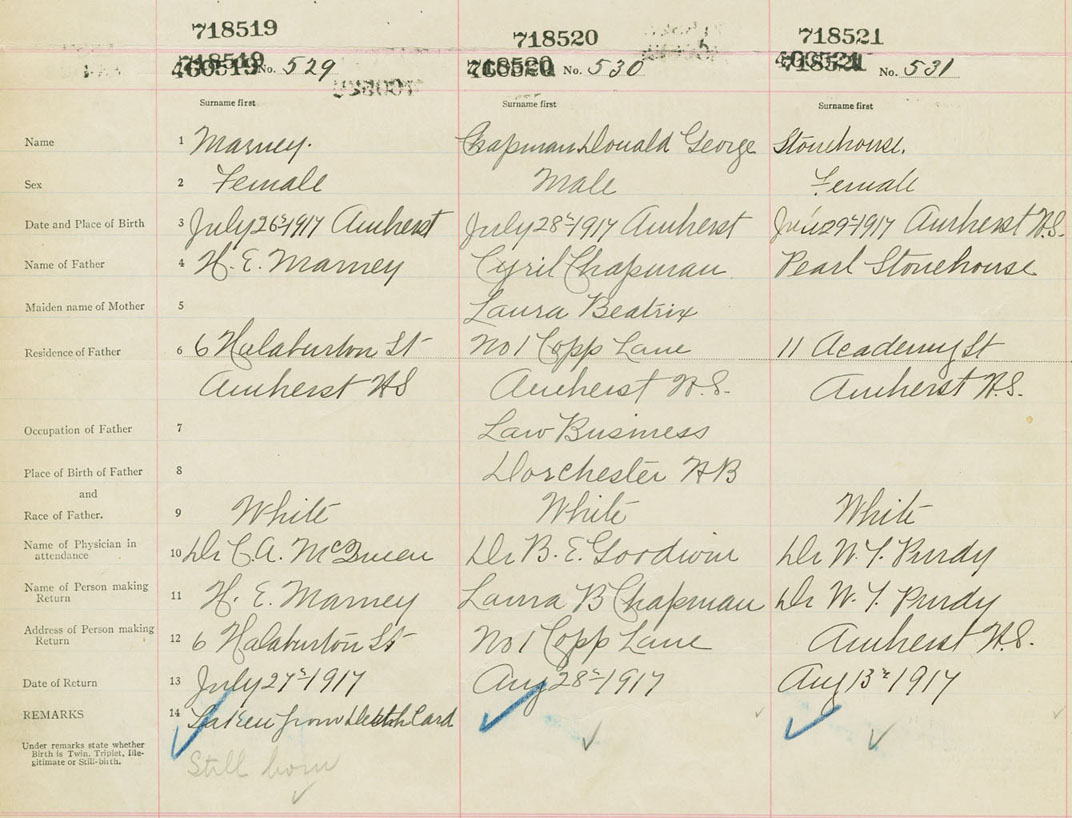 718519 718520 718521
718519 No. 529 718520 No. 530 718521 No. 531
Surname first Surname first Surname first
Name 1 Marney. Chapman Donald George Stonehouse.
Sex 2 Female Male Female
Date and Place of Birth 3 July 26 1917 Amherst July 28 1917 Amherst 29 1917 Amherst N.S.
Name of Father 4 H. E. Marney Cyril Chapman Pearl Stonehouse
Maiden name of Mother 5 Laura Beatrix
Residence of Father 6 6 Halaburton St No 1 Copp Lane 11 Academy St
Amherst NS Amherst N.S. Amherst N.S.
Occupation of Father 7 Law Business
Place of Birth of Father 8 Dorchester NB
and
Race of Father. 9 White White White
Name of Physician in
attendance 10 Dr C. A. McQueen Dr B. E. Goodwin Dr W. T. Purdy
Name of Person making
Return 11 H. E. Marney Laura B Chapman Dr W. T. Purdy
Address of Person making
Return 12 6 Halaburton St No 1 Copp Lane Amherst N.S.
Date of Return 13 July 27 1917 Aug 28 1917 Aug 13 1917
REMARKS 14 Taken from Death Card
Under remarks state whether
Birth is Twin, Triplet, Ille-
gitimate or Still-birth.
Still born